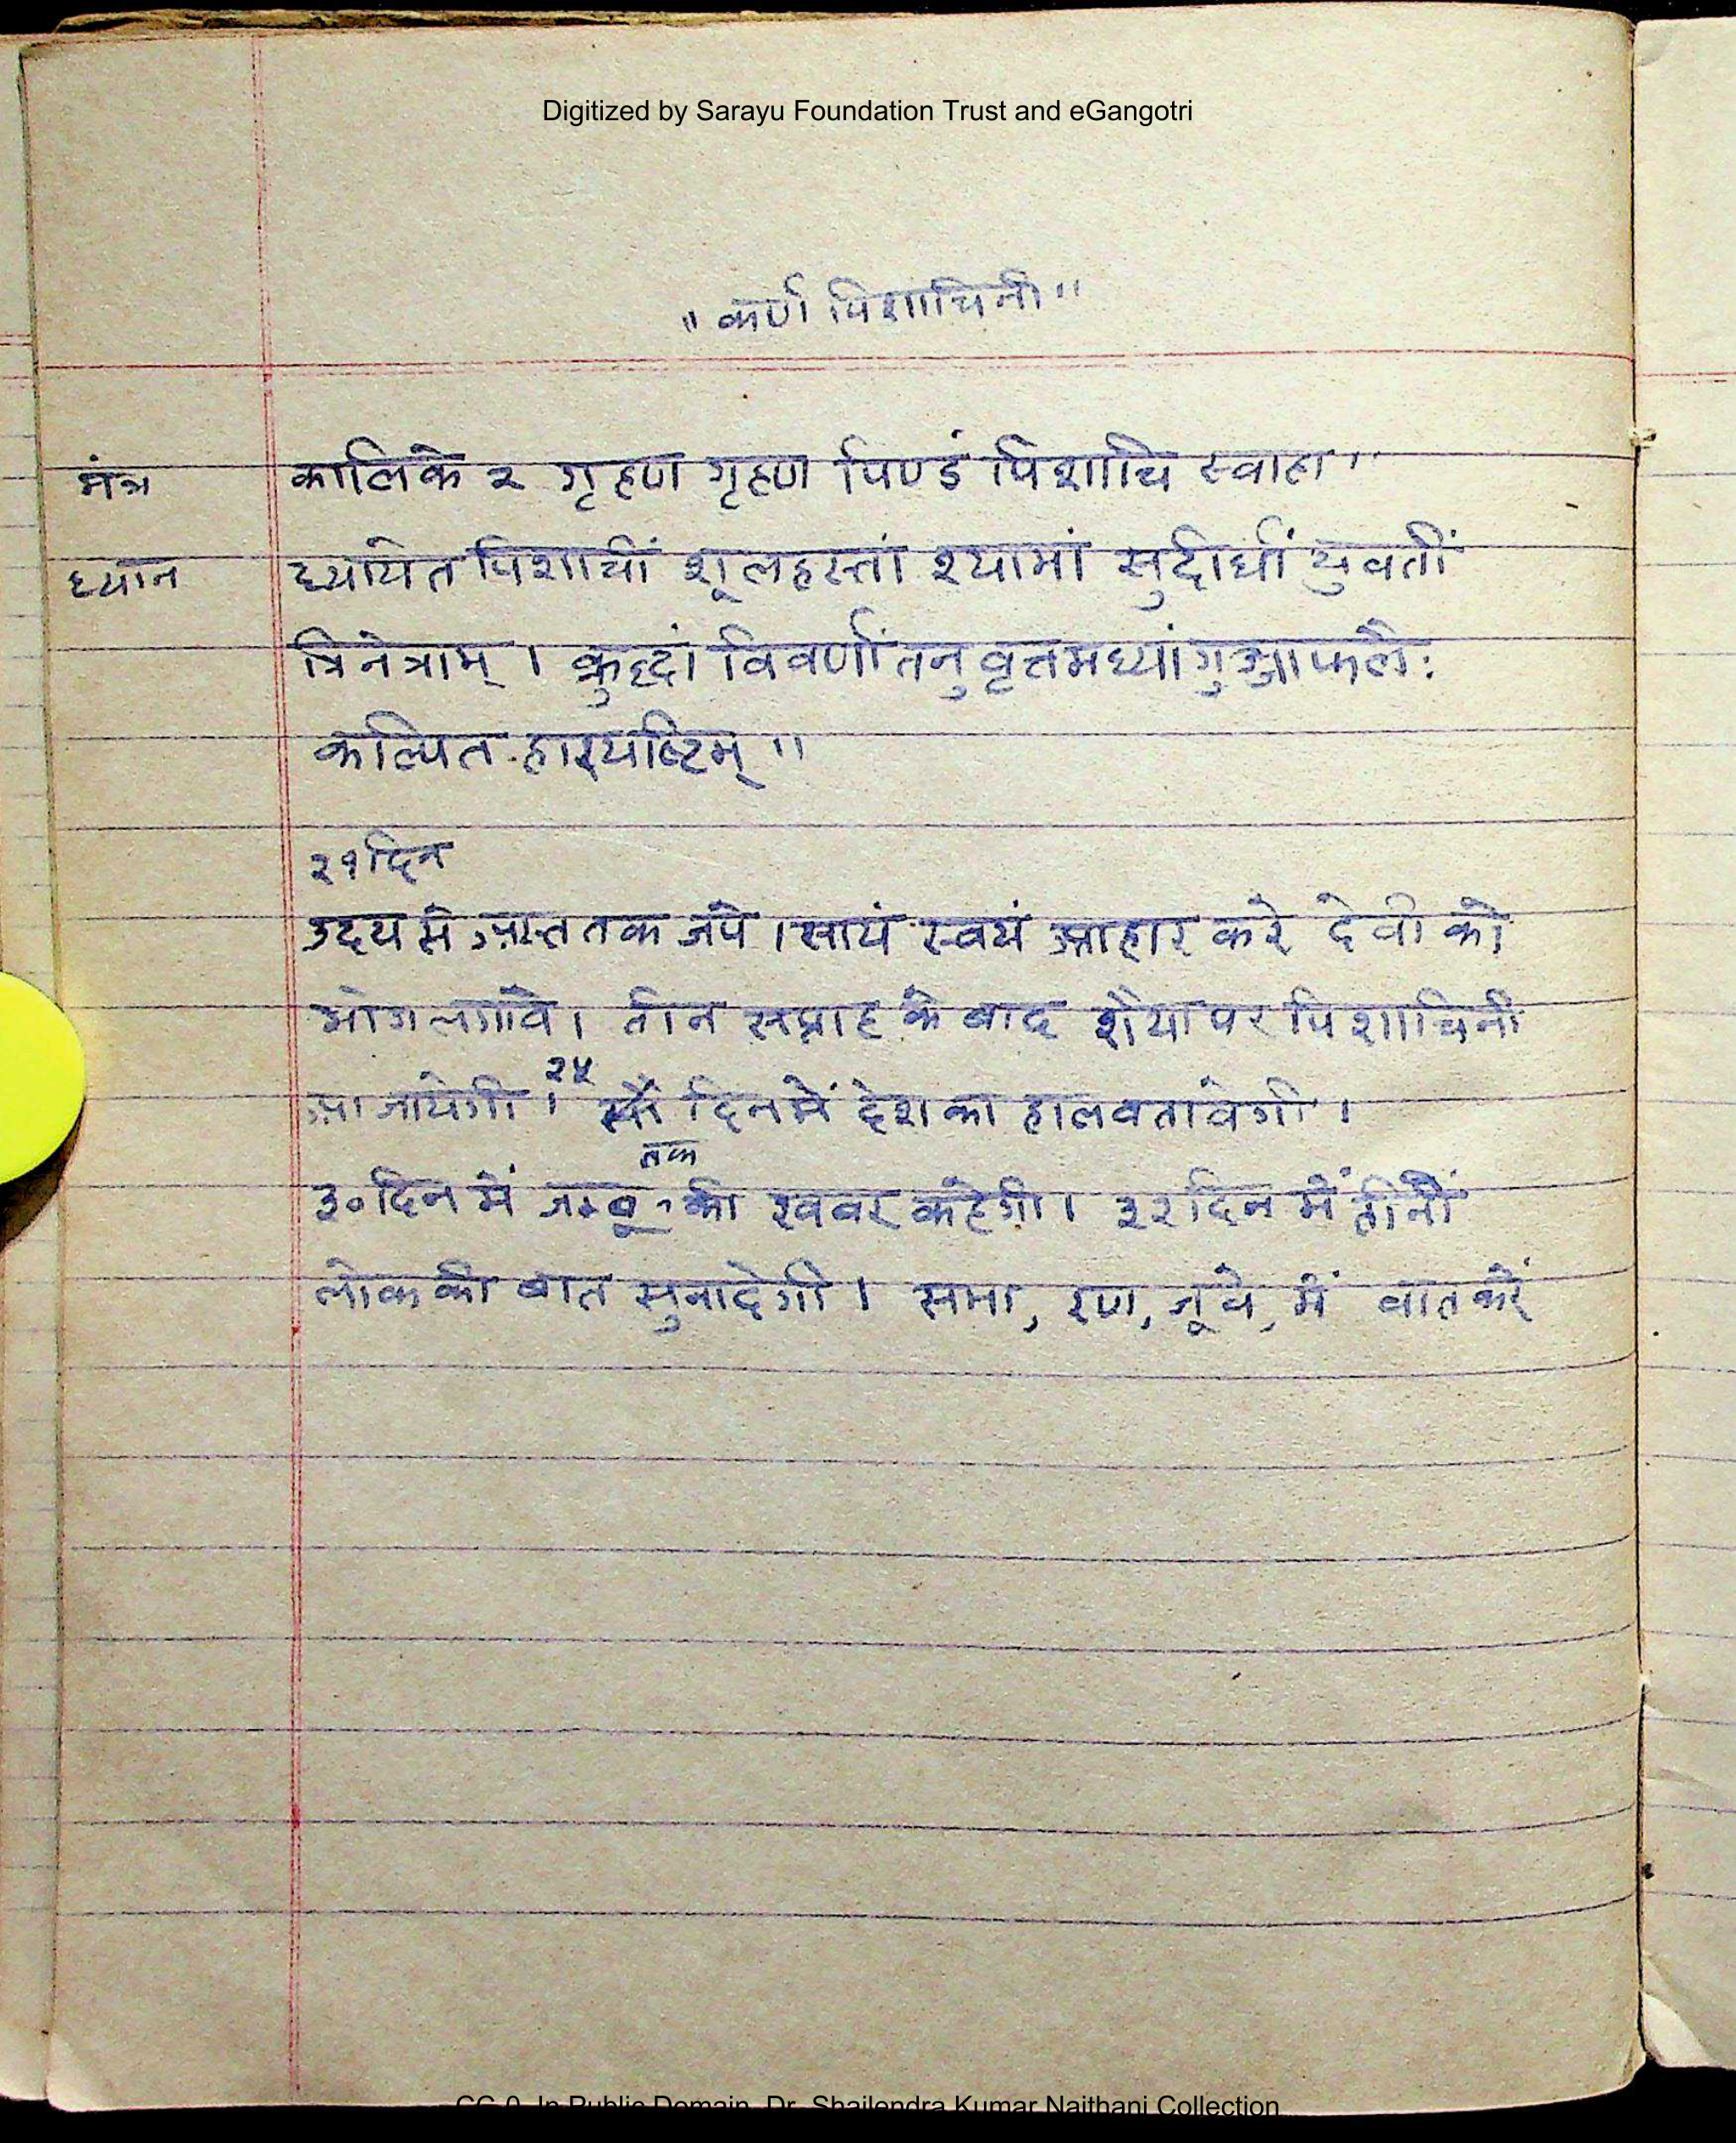 Digitized by Sarayu Foundation Trust and eGangotri
"कर्ण पिशाचिनी"
मंत्र कालिके २ गृहण गृहण पिण्डं पिशाचि स्वाहा"
ध्यान ध्यायेत पिशाचीं शूलहस्तां श्यामां सुदीर्घां युवतीं
त्रिनेत्राम् । क्रुद्धां विवर्णां तनु वृत्तमध्यां गुञ्जाफलै:
कल्पित हारयष्टिम् "
२१ दिन
उदय से अस्त तक जपे । सायं स्वयं आहार करे देवी को
भोग लगावे । तीन सप्ताह के बाद शैया पर पिशाचिनी
आ जायेगी । २५ दिन में देश का हाल बतावेगी ।
३० दिन में जम्बू तक की खबर कहेगी । ३२ दिन में तीनों
लोक की बात सुनादेगी । सभा, रण, जूवे, में बात करें
CC-0. In Public Domain. Dr. Shailendra Kumar Naithani Collection